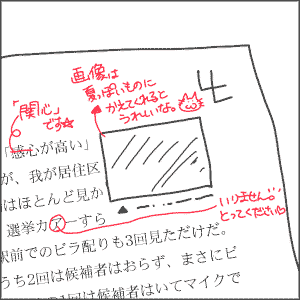 画像は
夏っぽいものに
かえてくれると
うれしいな。
「関心」
です☆
「感心が高い」
が、我が居住区
はほとんど見か
選挙カアーすら
駅前でのビラ配りも3回見ただけだ。
うち2回は候補者はおらず、まさにビ
1回は候補者はいてマイクで
いりません。
とってください